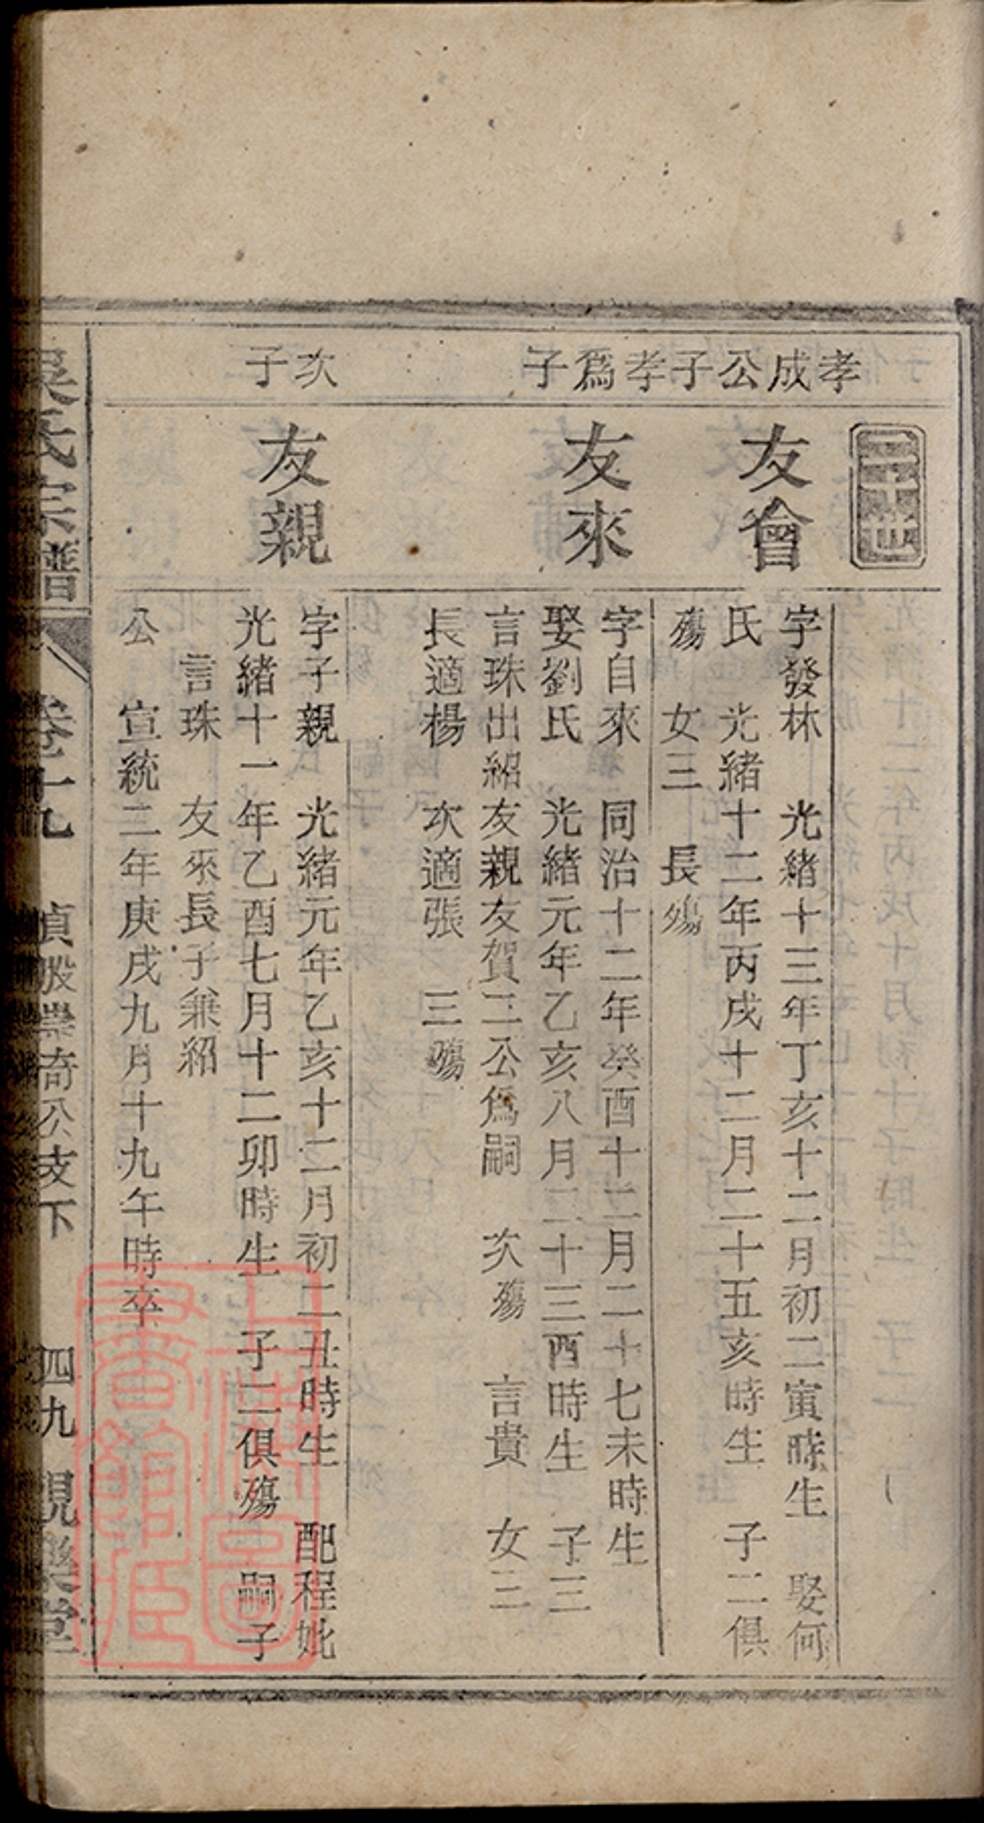 二十世
孝成公子
孝爲子
次子
友會
字發林 光緒十三年丁亥十二月初二寅時生 娶何
氏 光緒十二年丙戌十二月二十五亥時生 子二俱
殤 女三 長殤
友來
字自來 同治十二年癸酉十二月二十七未時生
娶劉氏 光緒元年乙亥八月二十三酉時生 子三
言珠出紹友親友賀二公爲嗣 次殤 言貴 女三
長適楊 次適張 三殤
友親
字子親 光緒元年乙亥十二月初二丑時生 配程妣
光緒十一年乙酉七月十二卯時生 子二俱殤 嗣子
言珠 友來長子兼紹
公 宣統二年庚戌九月十九午時卒
吳氏宗譜 卷十九 貞股崇奇公支下 四九 視樂堂
上海圖書館藏